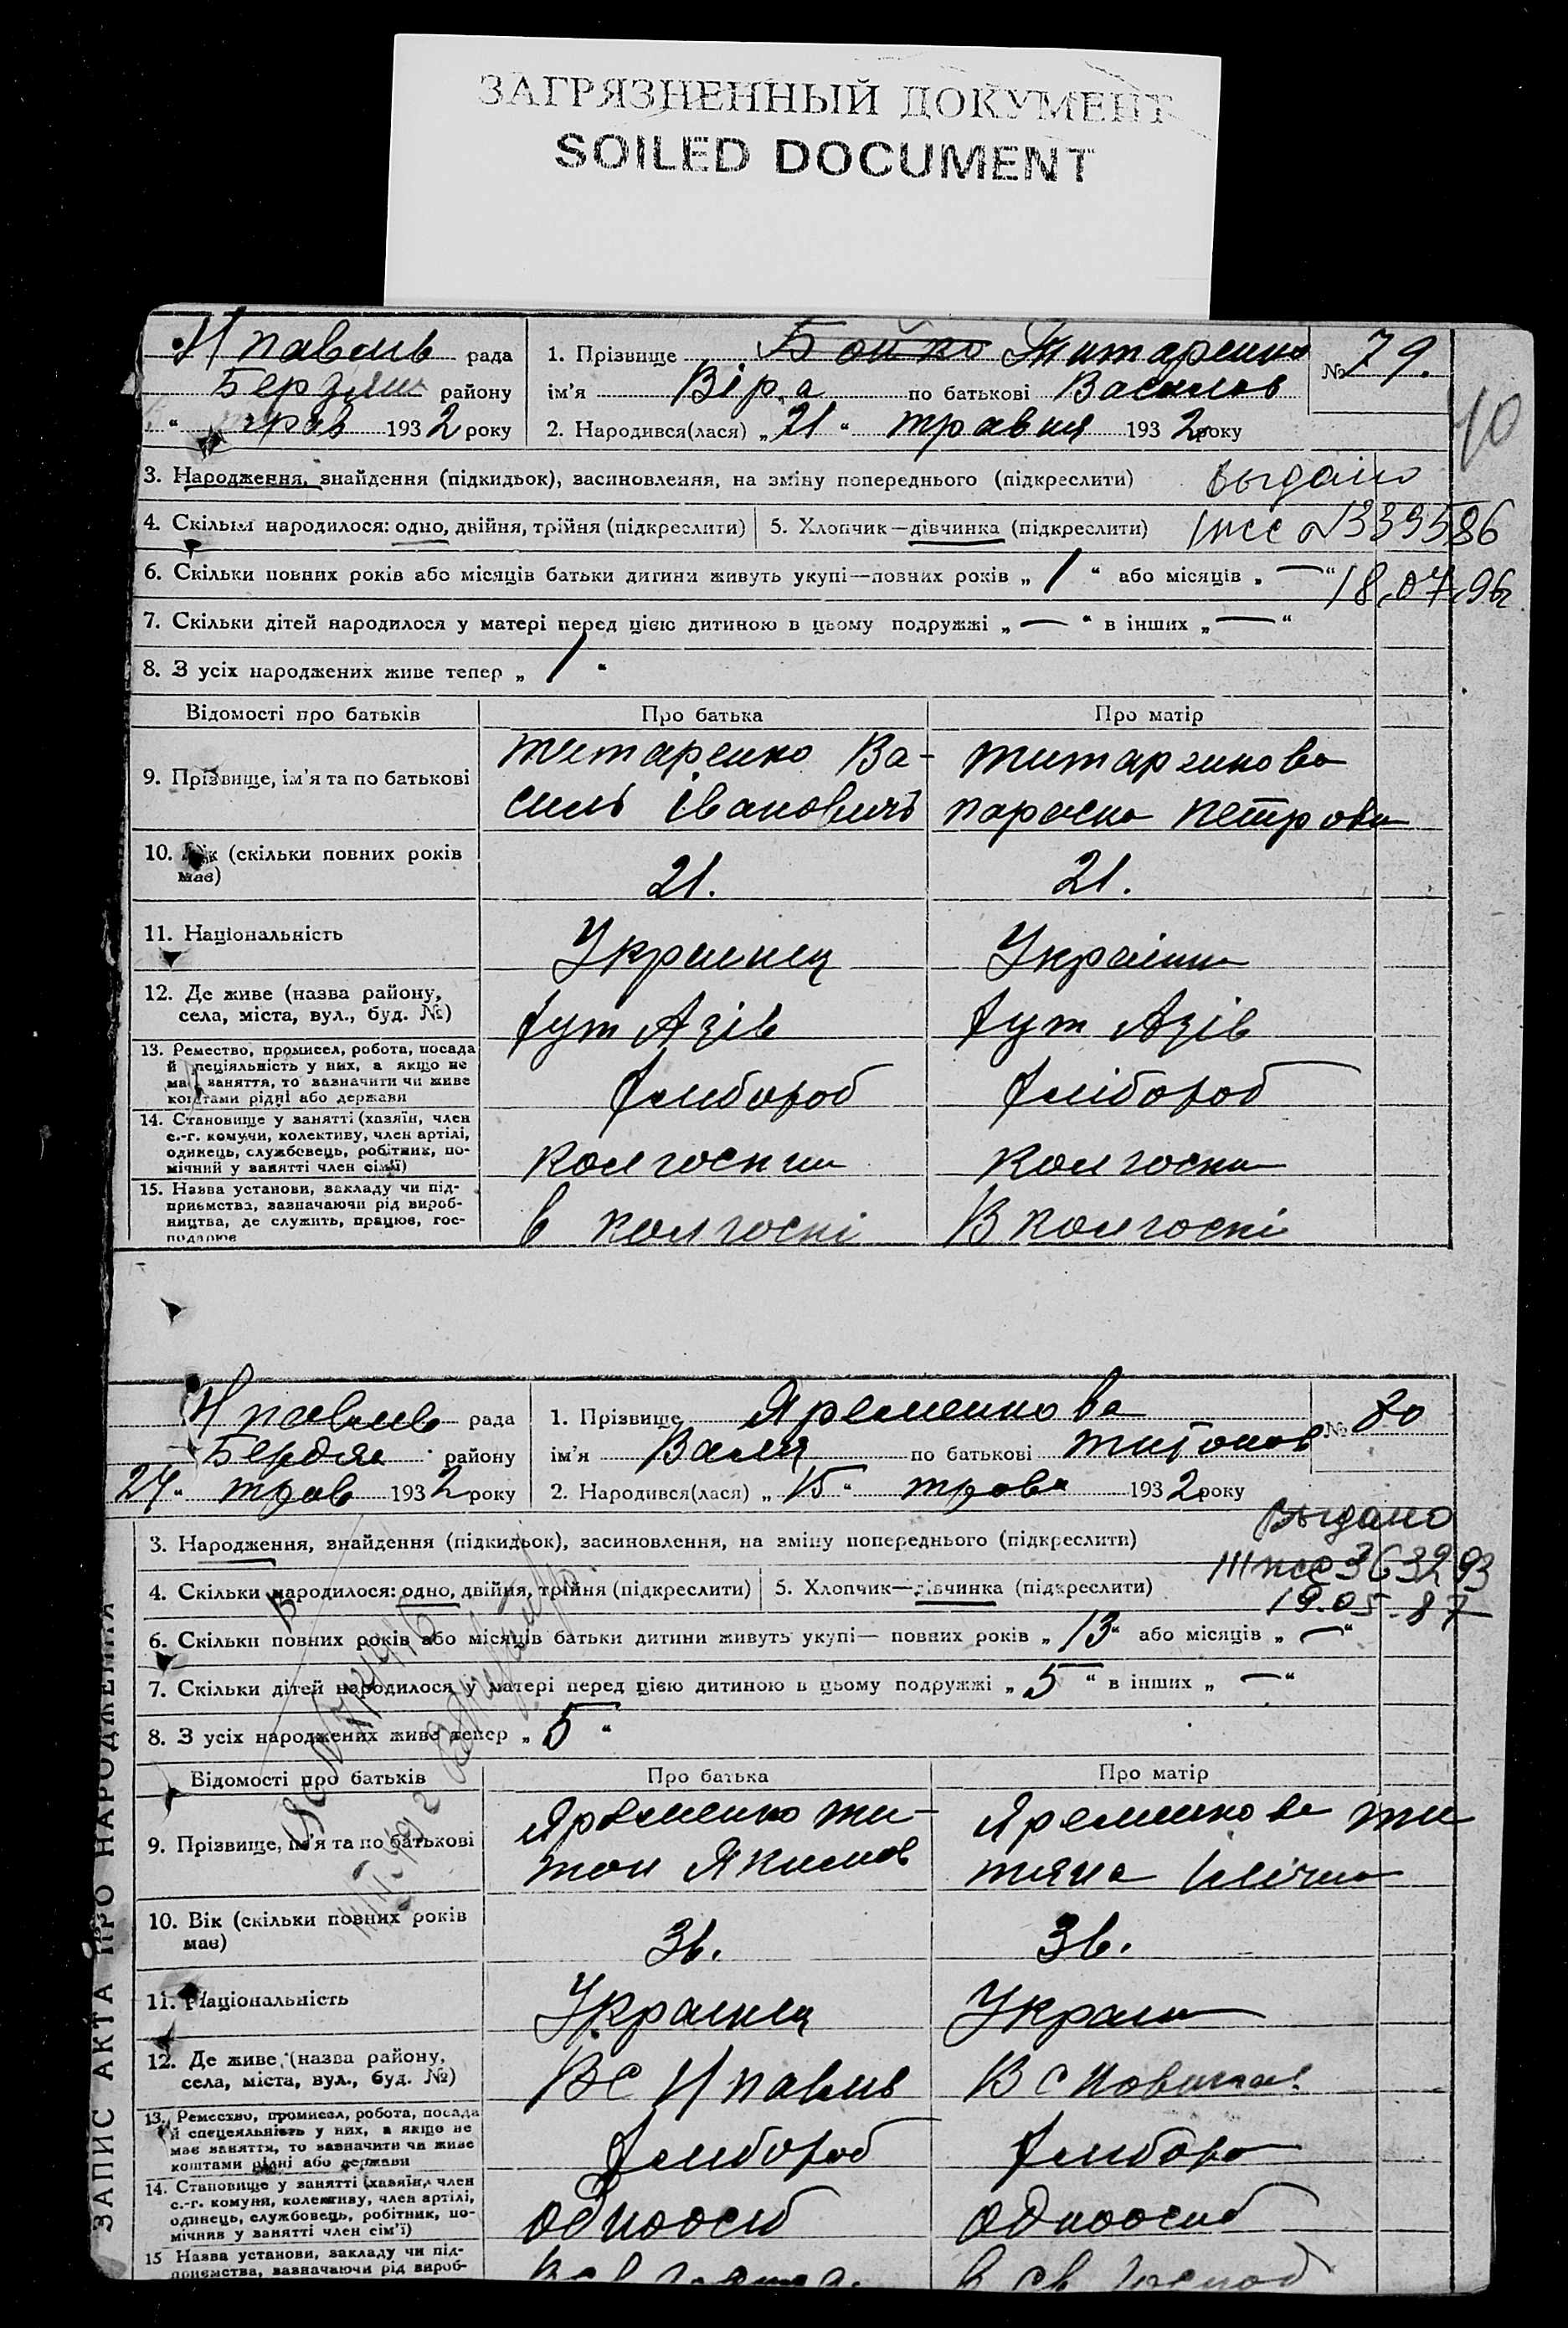 ЗАГРЯЗНЕННЫЙ ДОКУМЕНТ
SOILED DOCUMENT
Н павлів рада
Бердян району
трав 1932 року
1. Прізвище Бойко Титаренко
ім'я Віра по батькові Василів
2. Народився(лася) „21“ травня 1932 року
№ 79.
40
3. Народження, знайдення (підкидьок), засиновлення, на зміну попереднього (підкреслити)
выдано
4. Скільки народилося: одно, двійня, трійня (підкреслити) 5. Хлопчик—дівчинка (підкреслити)
339586
6. Скільки повних років або місяців батьки дитини живуть укупі—повних років „1“ або місяців „—“
18.07.96г
7. Скільки дітей народилося у матері перед цією дитиною в цьому подружжі „—“ в інших „—“
8. З усіх народжених живе тепер „1“
Відомості про батьків Про батька Про матір
9. Прізвище, ім'я та по батькові
титаренко Ва-
силь івановичь
титаренкова
параска петровн
10. Вік (скільки повних років
має)
21. 21.
11. Національність
Украинец Україн
12. Де живе (назва району,
села, міста, вул., буд. №)
Хут Азів Хут Азів
13. Ремество, промисел, робота, посада
й спеціяльність у них, а якщо не
має заняття, то зазначити чи живе
коштами рідні або держави
Хлибороб Хлібороб
14. Становище у занятті (хазяїн, член
с.-г. комуни, колективу, член артілі,
одинець, службовець, робітник, по-
мічний у занятті член сім'ї)
колгоспни колгоспн
15. Назва установи, закладу чи під-
приємства, зазначаючи рід вироб-
ництва, де служить, працює, гос-
подарює
в колгоспі В колгоспі
Н павлів рада
Бердян району
27. трав 1932 року
1. Прізвище Яременкова
ім'я Валя по батькові титонов
2. Народився(лася) „15“ трав 1932 року
№ 80
3. Народження, знайдення (підкидьок), засиновлення, на зміну попереднього (підкреслити)
выдано
363293
4. Скільки народилося: одно, двійня, трійня (підкреслити) 5. Хлопчик—дівчинка (підкреслити)
19.05.87
6. Скільки повних років або місяців батьки дитини живуть укупі— повних років „13“ або місяців „—“
7. Скільки дітей народилося у матері перед цією дитиною в цьому подружжі „5“ в інших „—“
8. З усіх народжених живе тепер „5“
Відомості про батьків Про батька Про матір
9. Прізвище, ім'я та по батькові
Яременко ти-
тон Якимов
Яременкова ти
тяна Ілічн
10. Вік (скільки повних років
має)
36. 36.
11. Національність
Украинец Украин
12. Де живе (назва району,
села, міста, вул., буд. №)
В С Н павлів В С Новопав.
13. Ремество, промисел, робота, посада
й спецеяльність у них, а якщо не
має заняття, то зазначити чи живе
коштами рідні або держави
Хлибороб Хлиборо
14. Становище у занятті (хазяїн, член
с.-г. комуни, колективу, член артілі,
одинець, службовець, робітник, по-
мічния у занятті член сім'ї)
одноосіб одноосиб
15 Назва установи, закладу чи під-
приємства, зазначаючи рід вироб-
ЗАПИС АКТА ПРО НАРОДЖЕННЯ